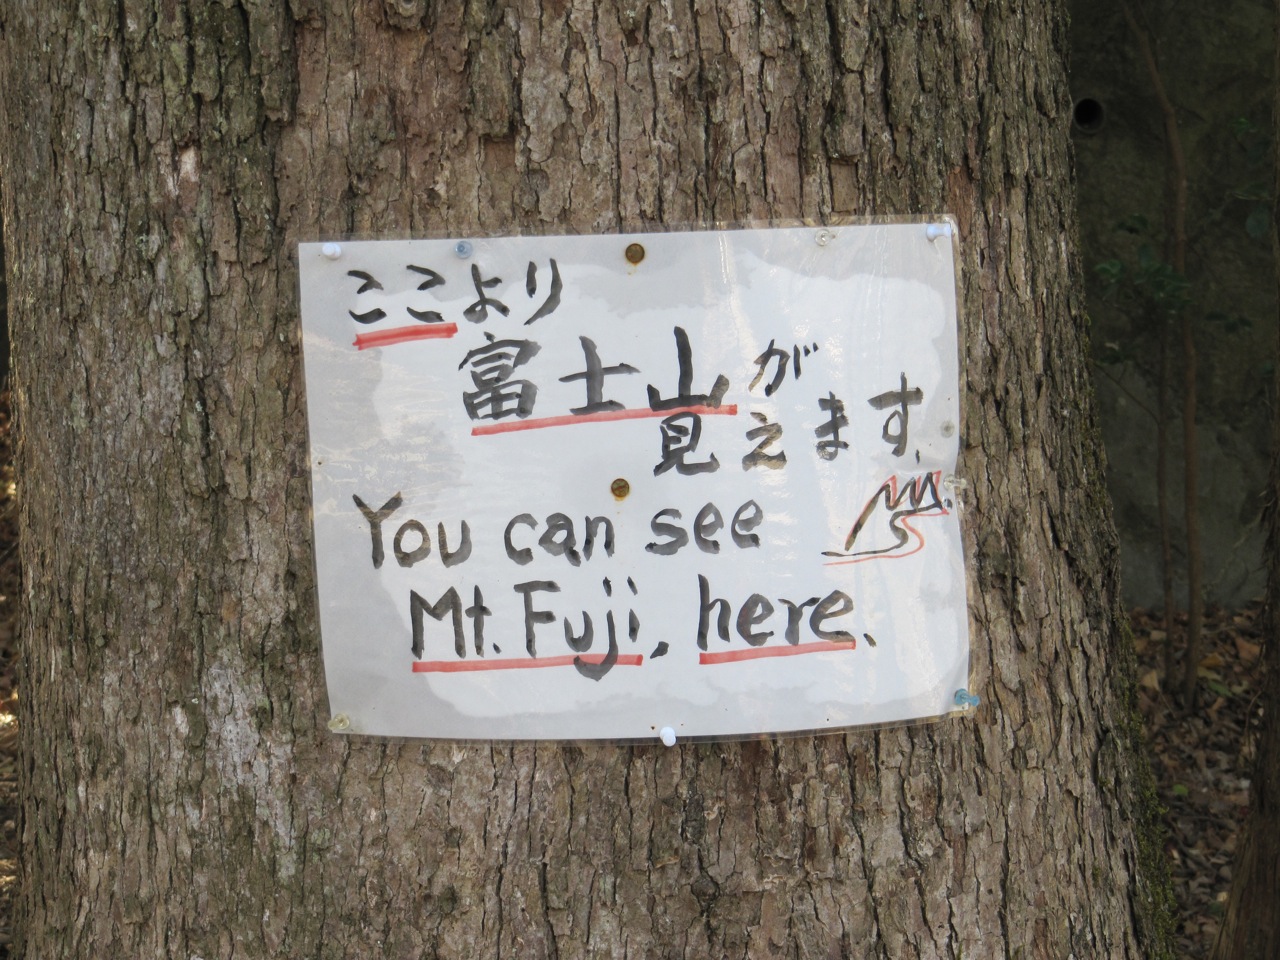 ここより
富士山が
見えます。
You can see
Mt. Fuji, here.